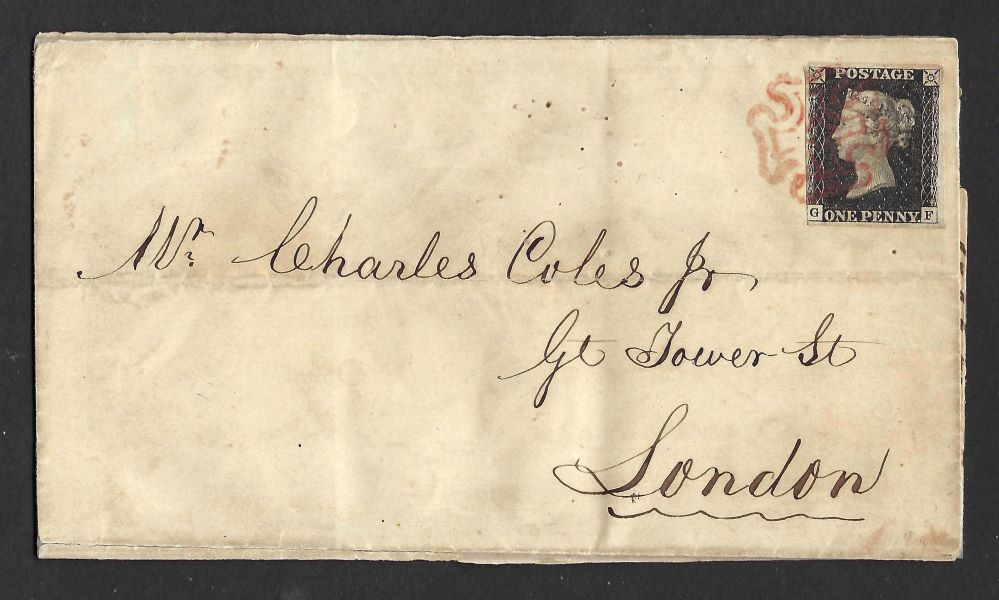 POSTAGE
G ONE PENNY. F
Mr. Charles Coles Jr
Gt Tower St
London